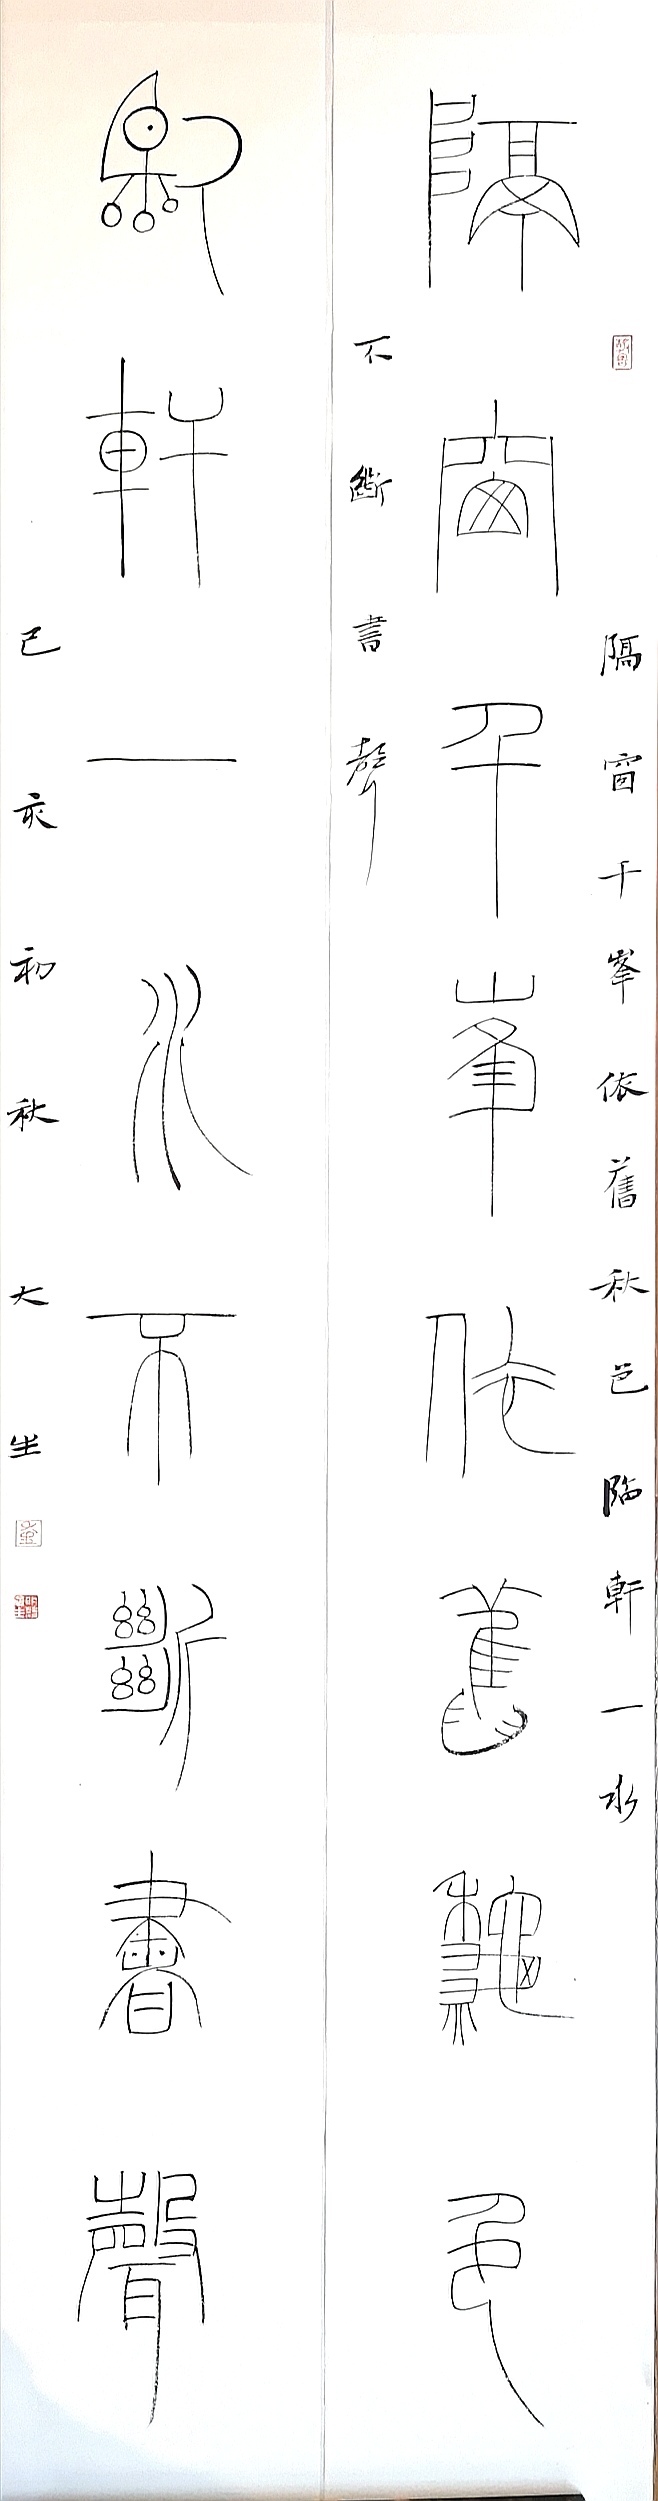 隔窗千峯依舊秋色
臨軒一水不斷書聲
隔窗千峯依舊秋色臨軒一水
不斷書聲
己亥初秋 大生